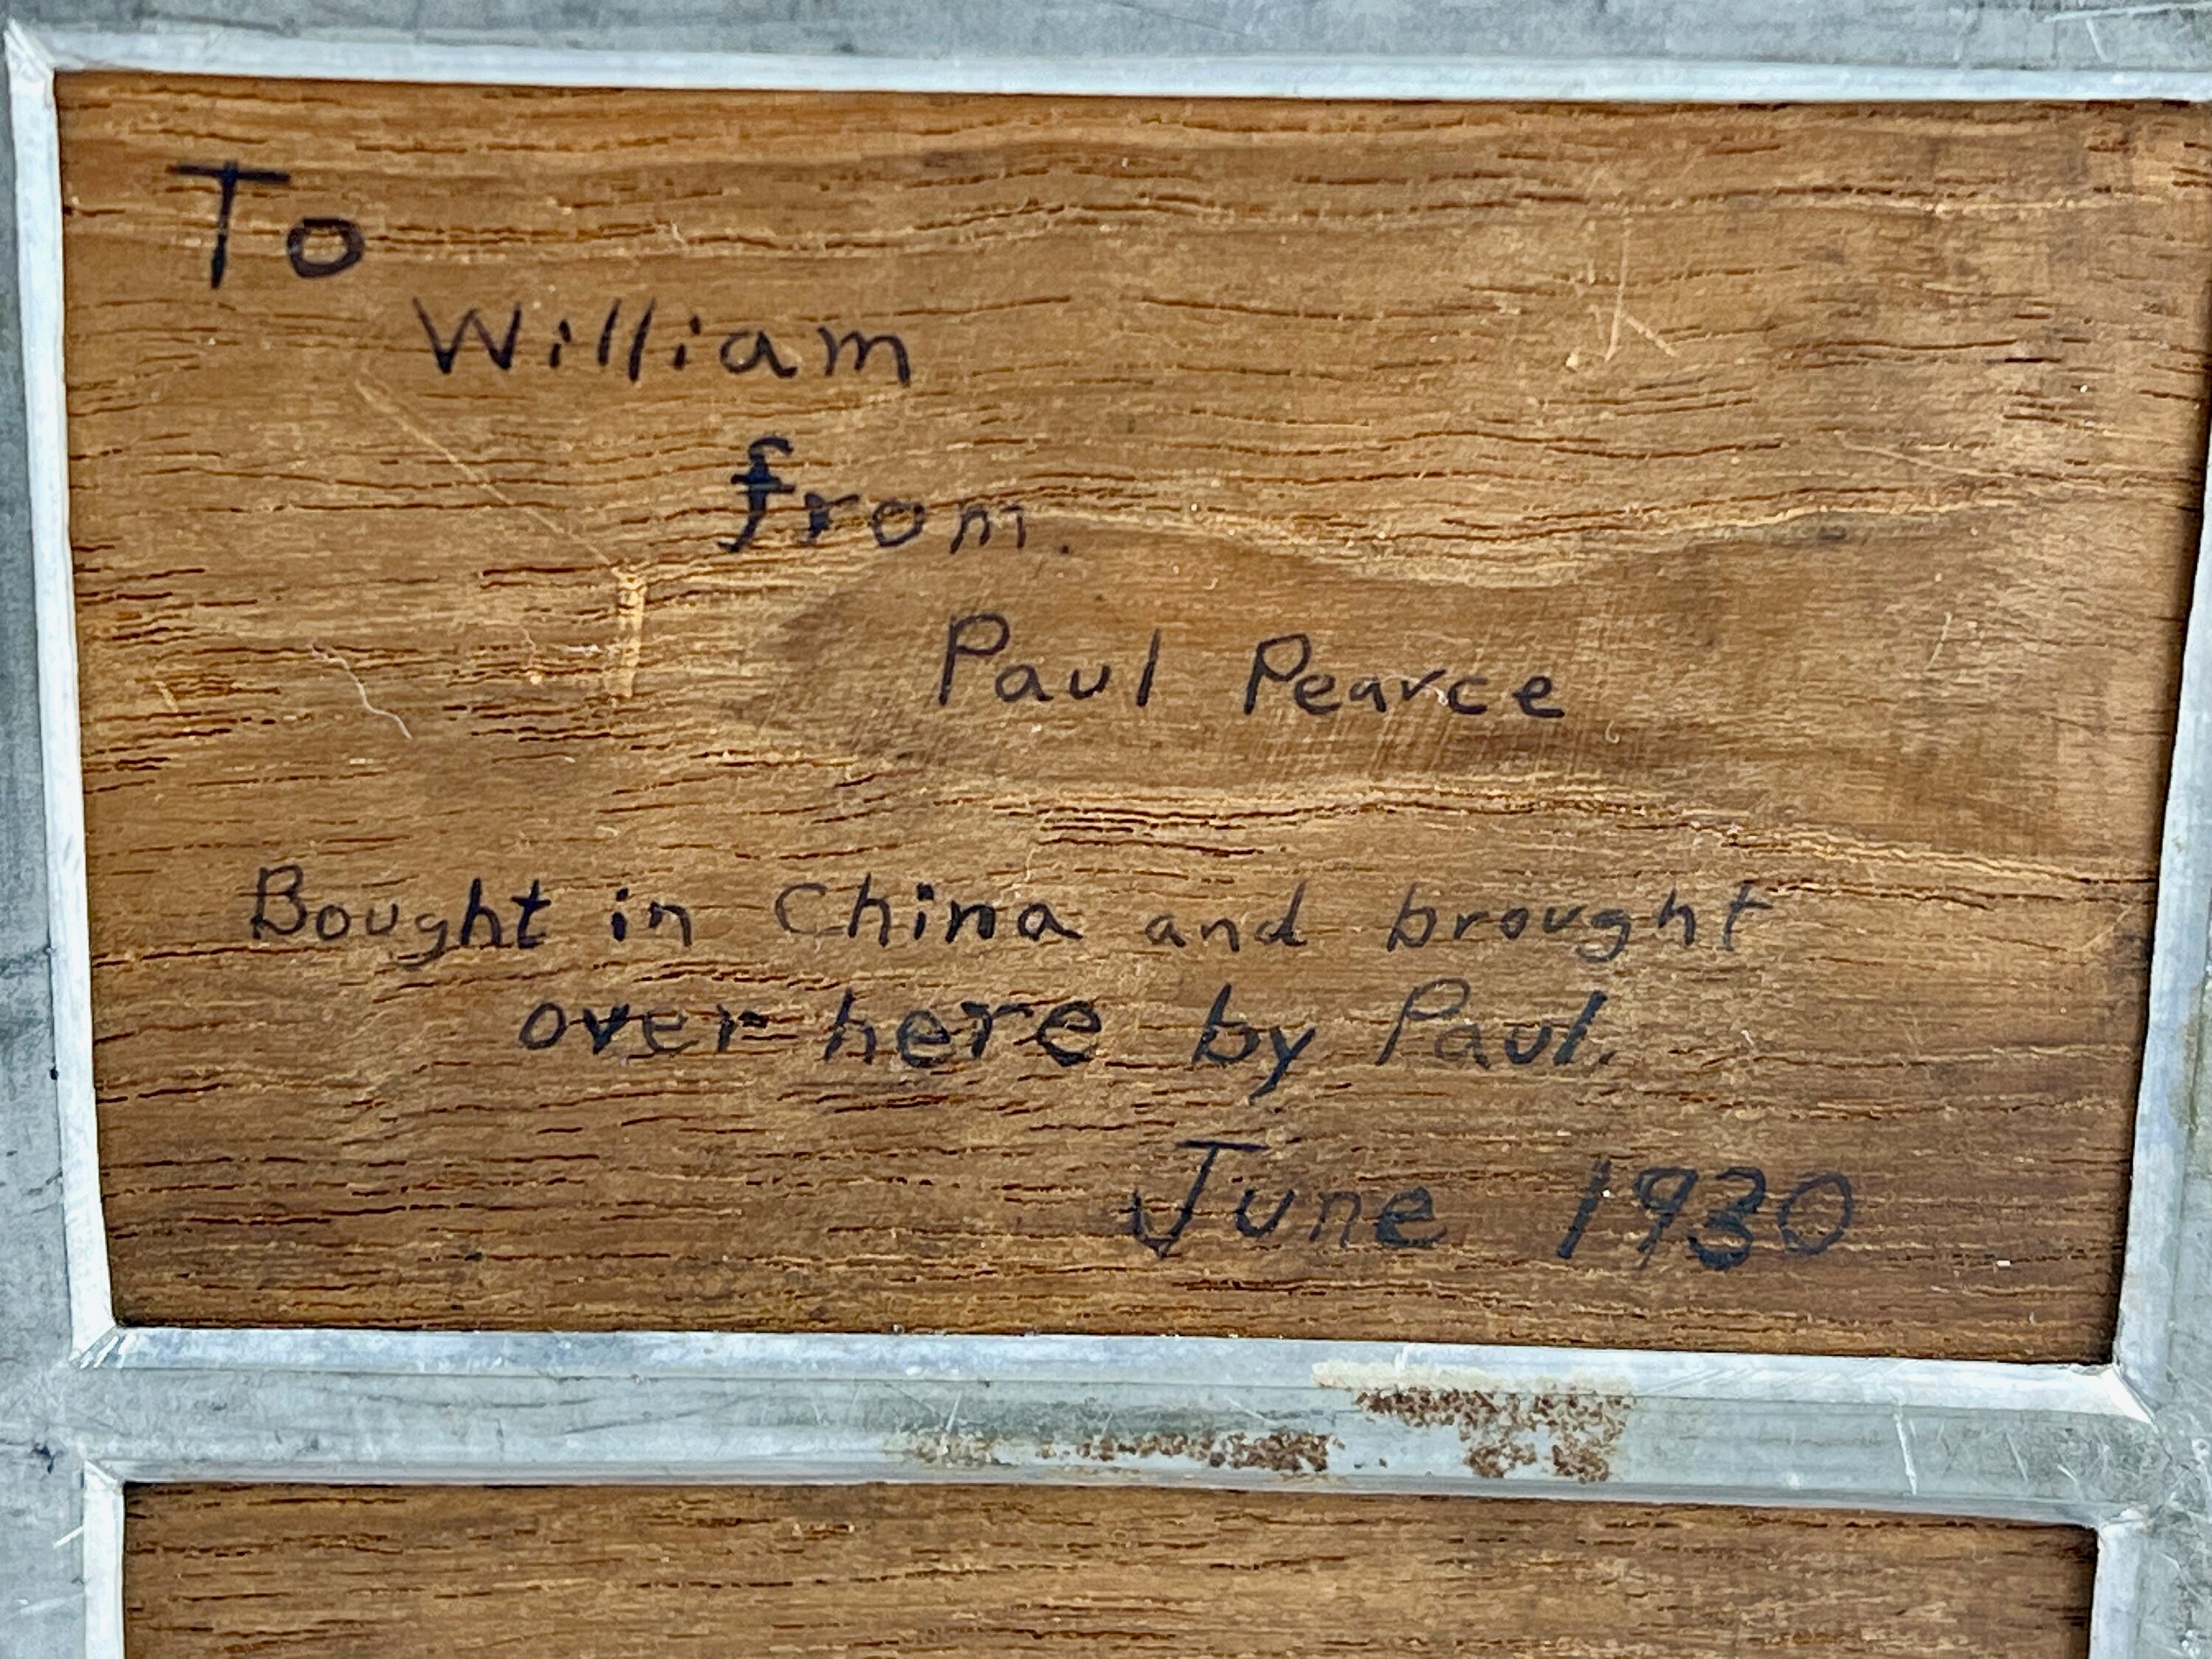 To
William
from.
Paul Pearce
Bought in China and brought
over here by Paul.
June 1930